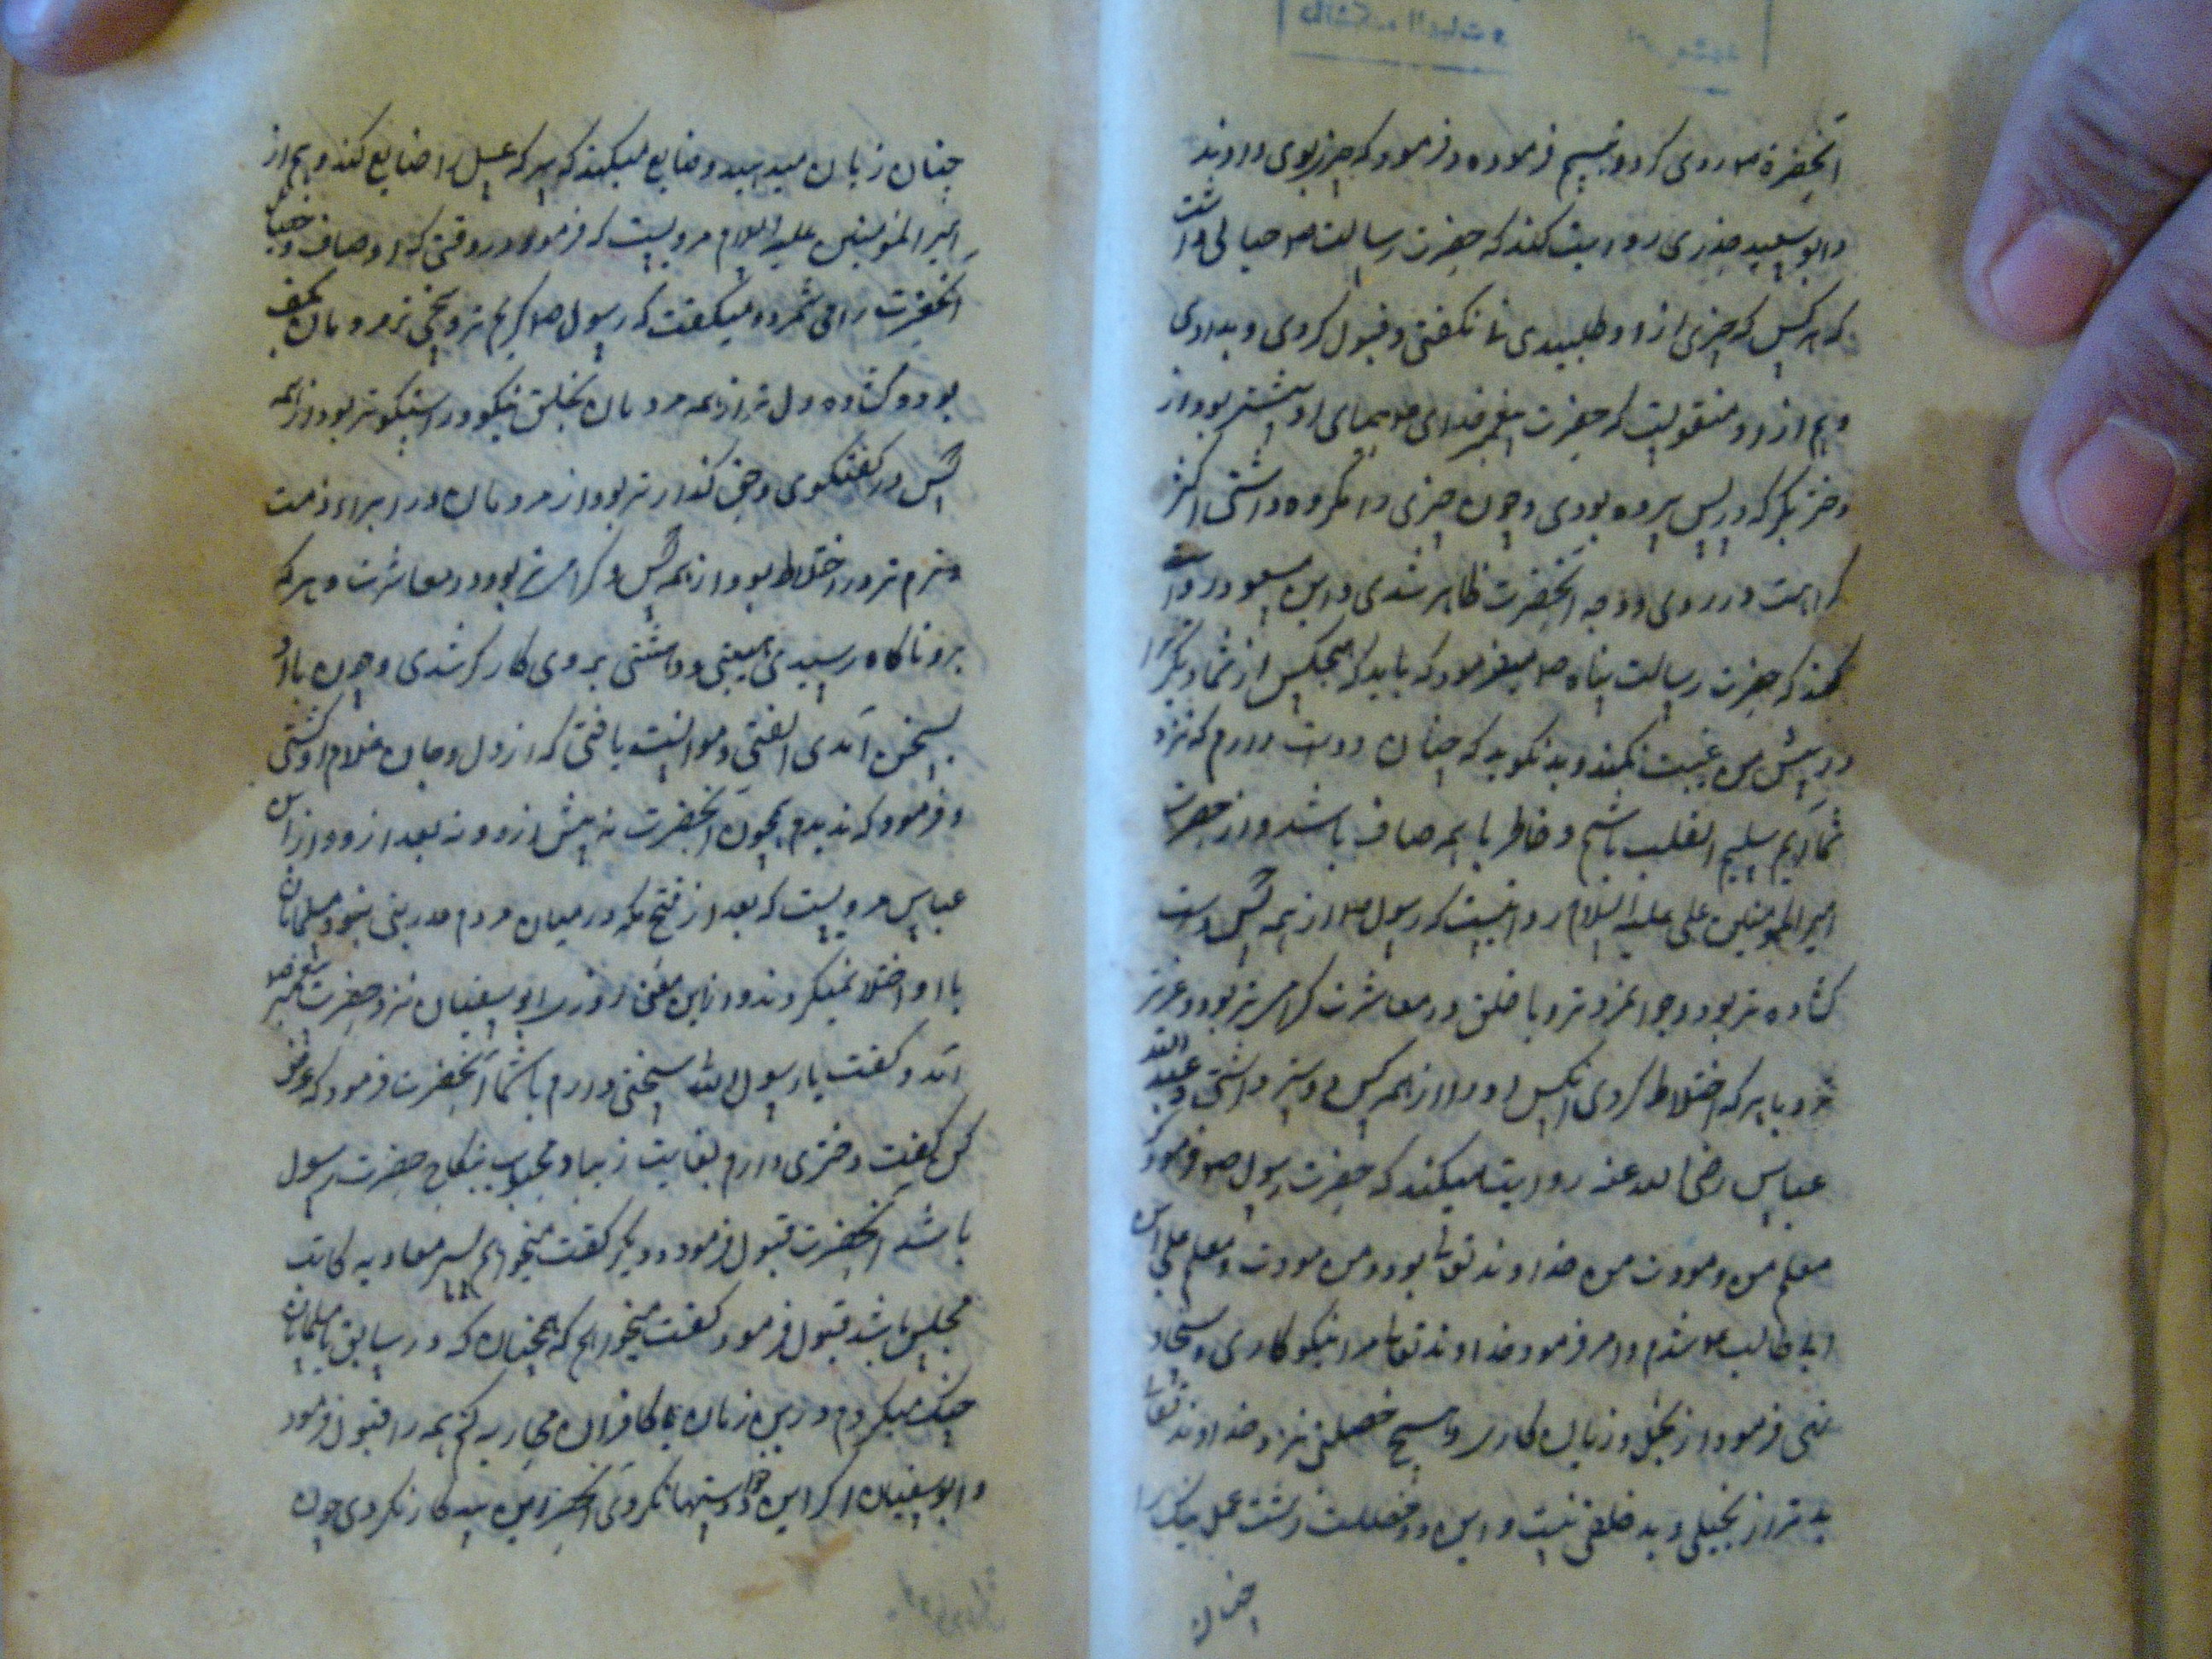 آنحضرة ص روی کرد و تبسم فرموده و فرمود که چیزی بوی دادند
و ابو سعید خدری روایت کند که حضرت رسالت ص حیائی داشت
که هر کس که چیزی ازو طلبیدی نا نکفتی و قبول کردی و بدادی
و هم ازو منقولیت که حضرت پیغمبر خدای ص حیای او بیشتر بود از
دختر بکر که در پس پرده بودی و چون چیزی را مکروه داشتی اثر
کراهت در روی آنحضرت ظاهر شدی و ابن مسعود روایت
کند که حضرت رسالت پناه ص میفرمود که باید که هیچکس از شما دیکر را
در پیش من غیبت نکند و بد نکوید که چنان دوست دارم که نزد
شما آیم سلیم القلب باشم و خاطر با همه صاف باشد و از حضرت
امیر المومنین علی علیه السلام روایتست که رسول ص از همه کس دست
کشاده تر بود و جوانمرد تر و با خلق در معاشرت کرامی تر بود و عزیز
تر و با هر که اختلاط کردی آنکس او را از همه کس دوستر داشتی و عبد الله
عباس رضی الله عنه روایت میکند که حضرت رسول ص فرمود که
معلم من و مودب من خداوند تعالی بود و من مودب و معلم علی ابن
ابی طالب ع شدم و امر فرمود خداوند تعالی مرا نیکو کاری و سخاوت
نهی فرمود از بخل و زیان کاری و هیچ خصلتی نزد خداوند تعالی
بدتر از بخیلی و بد خلقی نیست و این دو خصلت زشت عمل نیک را
چنان
چنان زبان میدهد و ضایع میکند که سرکه عسل را ضایع کند و هم از
امیر المؤمنین علیه السلام مرویست که فرمود در وقتی که اوصاف و خصایل
آنحضرت را می شمرد و میکفت که رسول ص کریم تر و سخی تر مردمان بکف
بود و کشاده دل تر از همه مردمان بخلق نیکو و راستکو تر بود از همه
کس در کفتکوی و حق کذار تر بود از مردمان در ابراء ذمت
و نرم تر در اختلاط بود از همه کس و کرامی تر بود در معاشرت و هر که
برو ناکاه رسیدی هیبتی و داشتنی بر وی کارکر شدی و چون با او
بسخن آمدی الفتی و موانست یافتی که از دل و جان غلام او کشتی
و فرمود که ندیدم همچون آنحضرت نه پیش ازو و نه بعد ازو و از ابن
عباس مرویست که بعد از فتح مکه در میان مردم قدر بنی نبود و مسلمانان
با او اختلاط نمیکردند و از این معنی روزی ابو سفیان نزد حضرت پیغمبر ص
آمد و کفت یا رسول الله سخنی دارم با شما آنحضرت فرمود که عرض
کن کفت دختری دارم بغایت زیبا و محبوب بنکاح حضرت رسول
باشد آنحضرت قبول فرموده و دیکر کفت میخواهم پسرم معاویه کاتب
مجلس باشد قبول فرمود کفت میخواهم که همچنان که در سابق با مسلمانان
جنک میکردم درین زمان با کافران محاربه کنم همه را قبول فرمود
و ابو سفیان اکر این درخواستها نکردی آنحضرت این سه کار نکردی چون